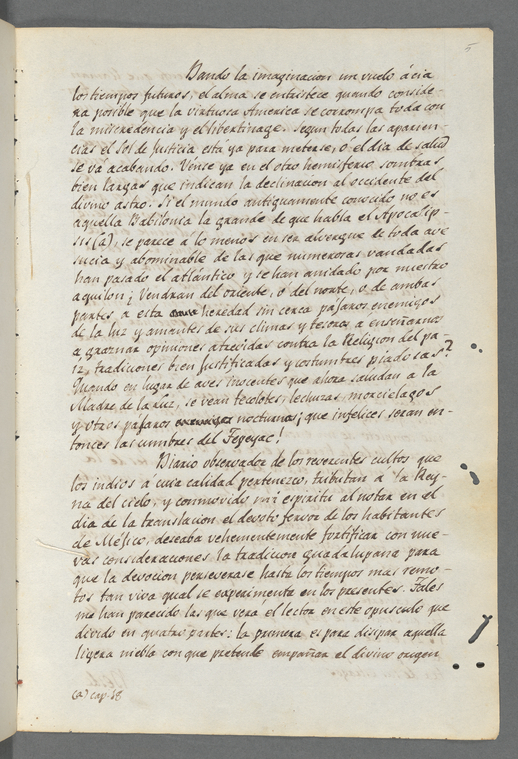 5
Dando la imaginacion un vuelo ácia
los tiempos futuros, el alma se entristece quando conside-
ra posible que la virtuosa America se corrompa toda con
la incredencia y el libertinage. Segun todas las aparien-
cias el Sol de Justicia esta ya para meterse, ó el dia de salud
se vá acabando. Vense ya en el otro hemisferio sombras
bien largas que indican la declinacion al occidente del
divino astro. Si el mundo antiguamente conocido no es
aquella Babilonia la grande de que habla el Apocalip-
sis (a), se parece a lo menos en ser alvergue de toda ave
sucia y abominable de las que numerosas vandadas
han pasado el atlántico, y se han anidado por nuestro
aquilon ¡Vendran del oriente, ó del norte, o de ambas
partes a esta heredad sin cerca pájaros enemigos
de la luz y amantes de sus climas y tesoros a enseñarnos
a graznar opiniones atrevidas contra la Religion del pa-
iz, tradiciones bien justificadas y costumbres piadosas?
Quando en lugar de aves inocentes que ahora saludan a la
Madre de la Luz, se vean tecolotes, lechuzas, morcielagos
y otros pájaros nocturnos ¡que infelices seran en-
tonces las cumbres del Tepeyac!
Diario observador de los reverentes cultos que
los indios a cuia calidad pertenezco, tributan a la Rey-
na del cielo, y conmovido mi espiritu al notar en el
dia de la translacion el devoto fervor de los habitantes
de Méjico, deseaba vehementemente fortificar con nue-
vas consideraciones la tradicion guadalupana para
que la devocion perseverase hasta los tiempos mas remo-
tos tan viva qual se experimenta en los presentes. Tales
me han parecido las que vera el lector en este opusculo que
divido en quatro partes: la primera es para disipar aquella
ligera niebla con que pretende empañar el divino origen
(a) cap. 18